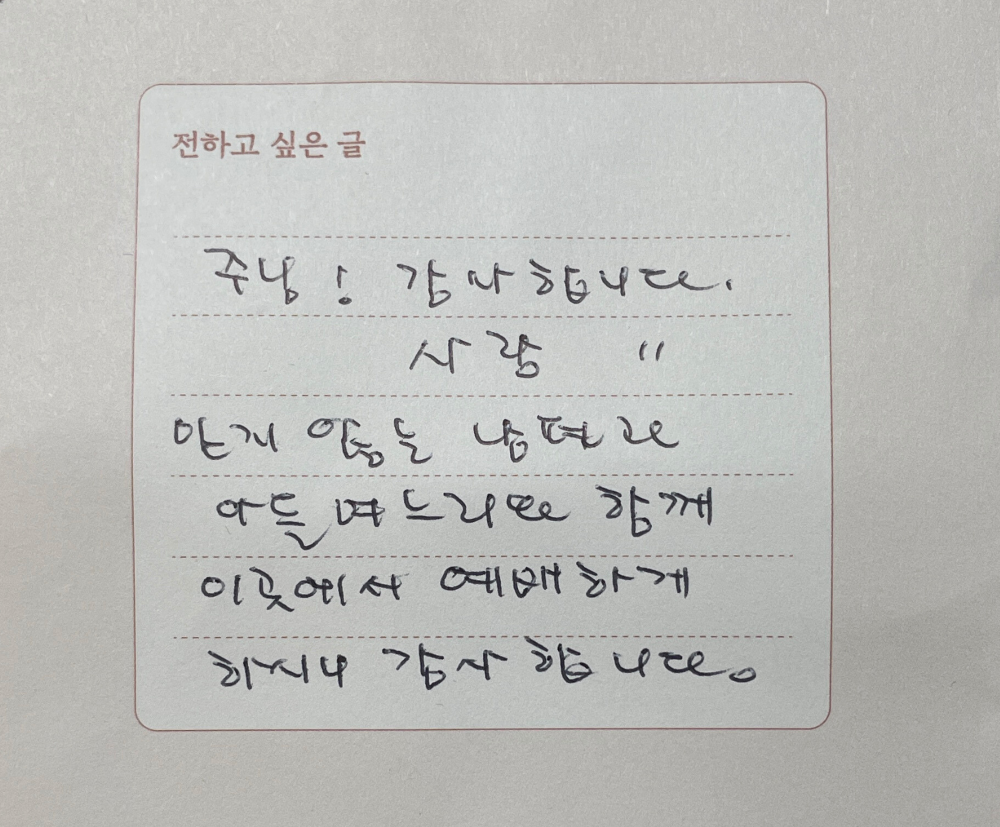 전하고 싶은 글
주님! 감사합니다.
사랑 "
믿지 않는 남편과
아들 며느리와 함께
이곳에서 예배하게
하시니 감사합니다。